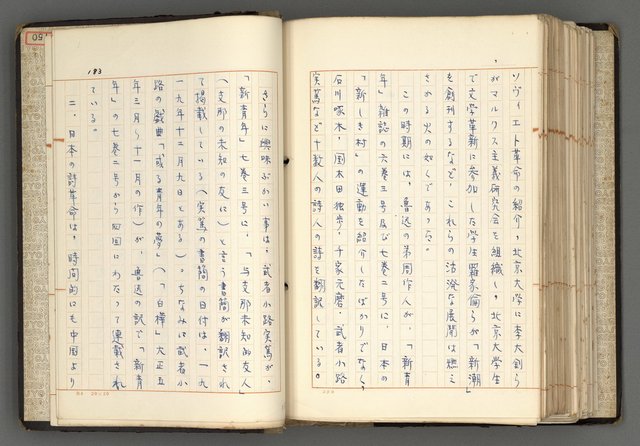 ソヴィエト革命の紹介、北京大学に李大釗ら
がマルクス主義研究会を組織し、北京大学生
で文学革新に参加した学生羅家倫らが「新潮」
を創刊するなど、これらの活溌な展開は燃え
さかる火の如くであった。
この時期には、魯迅の弟周作人が、「新青
年」雑誌の六巻三号及び七巻二号に、日本の
「新しき村」の運動を紹介したばかりでなく、
石川啄木、国木田独歩、千家元麿、武者小路
実篤など十数人の詩人の詩を翻訳している。
183
さらに興味ぶかい事は、武者小路実篤が、
「新青年」七巻三号に、「与支那未知的友人」
(支那の未知の友に)と言う書簡が翻訳され
て掲載している(実篤の書簡の日付は、一九
一九年十二月九日とある)。ちなみに武者小
路の戯曲「或る青年の夢」(「白樺」大正五
年三月〜十一月の作)が、魯迅の訳で、「新青
年」の七巻二号から四回にわたって連載され
ている。
二、日本の詩革命は、時間的にも中国より
50
20×20